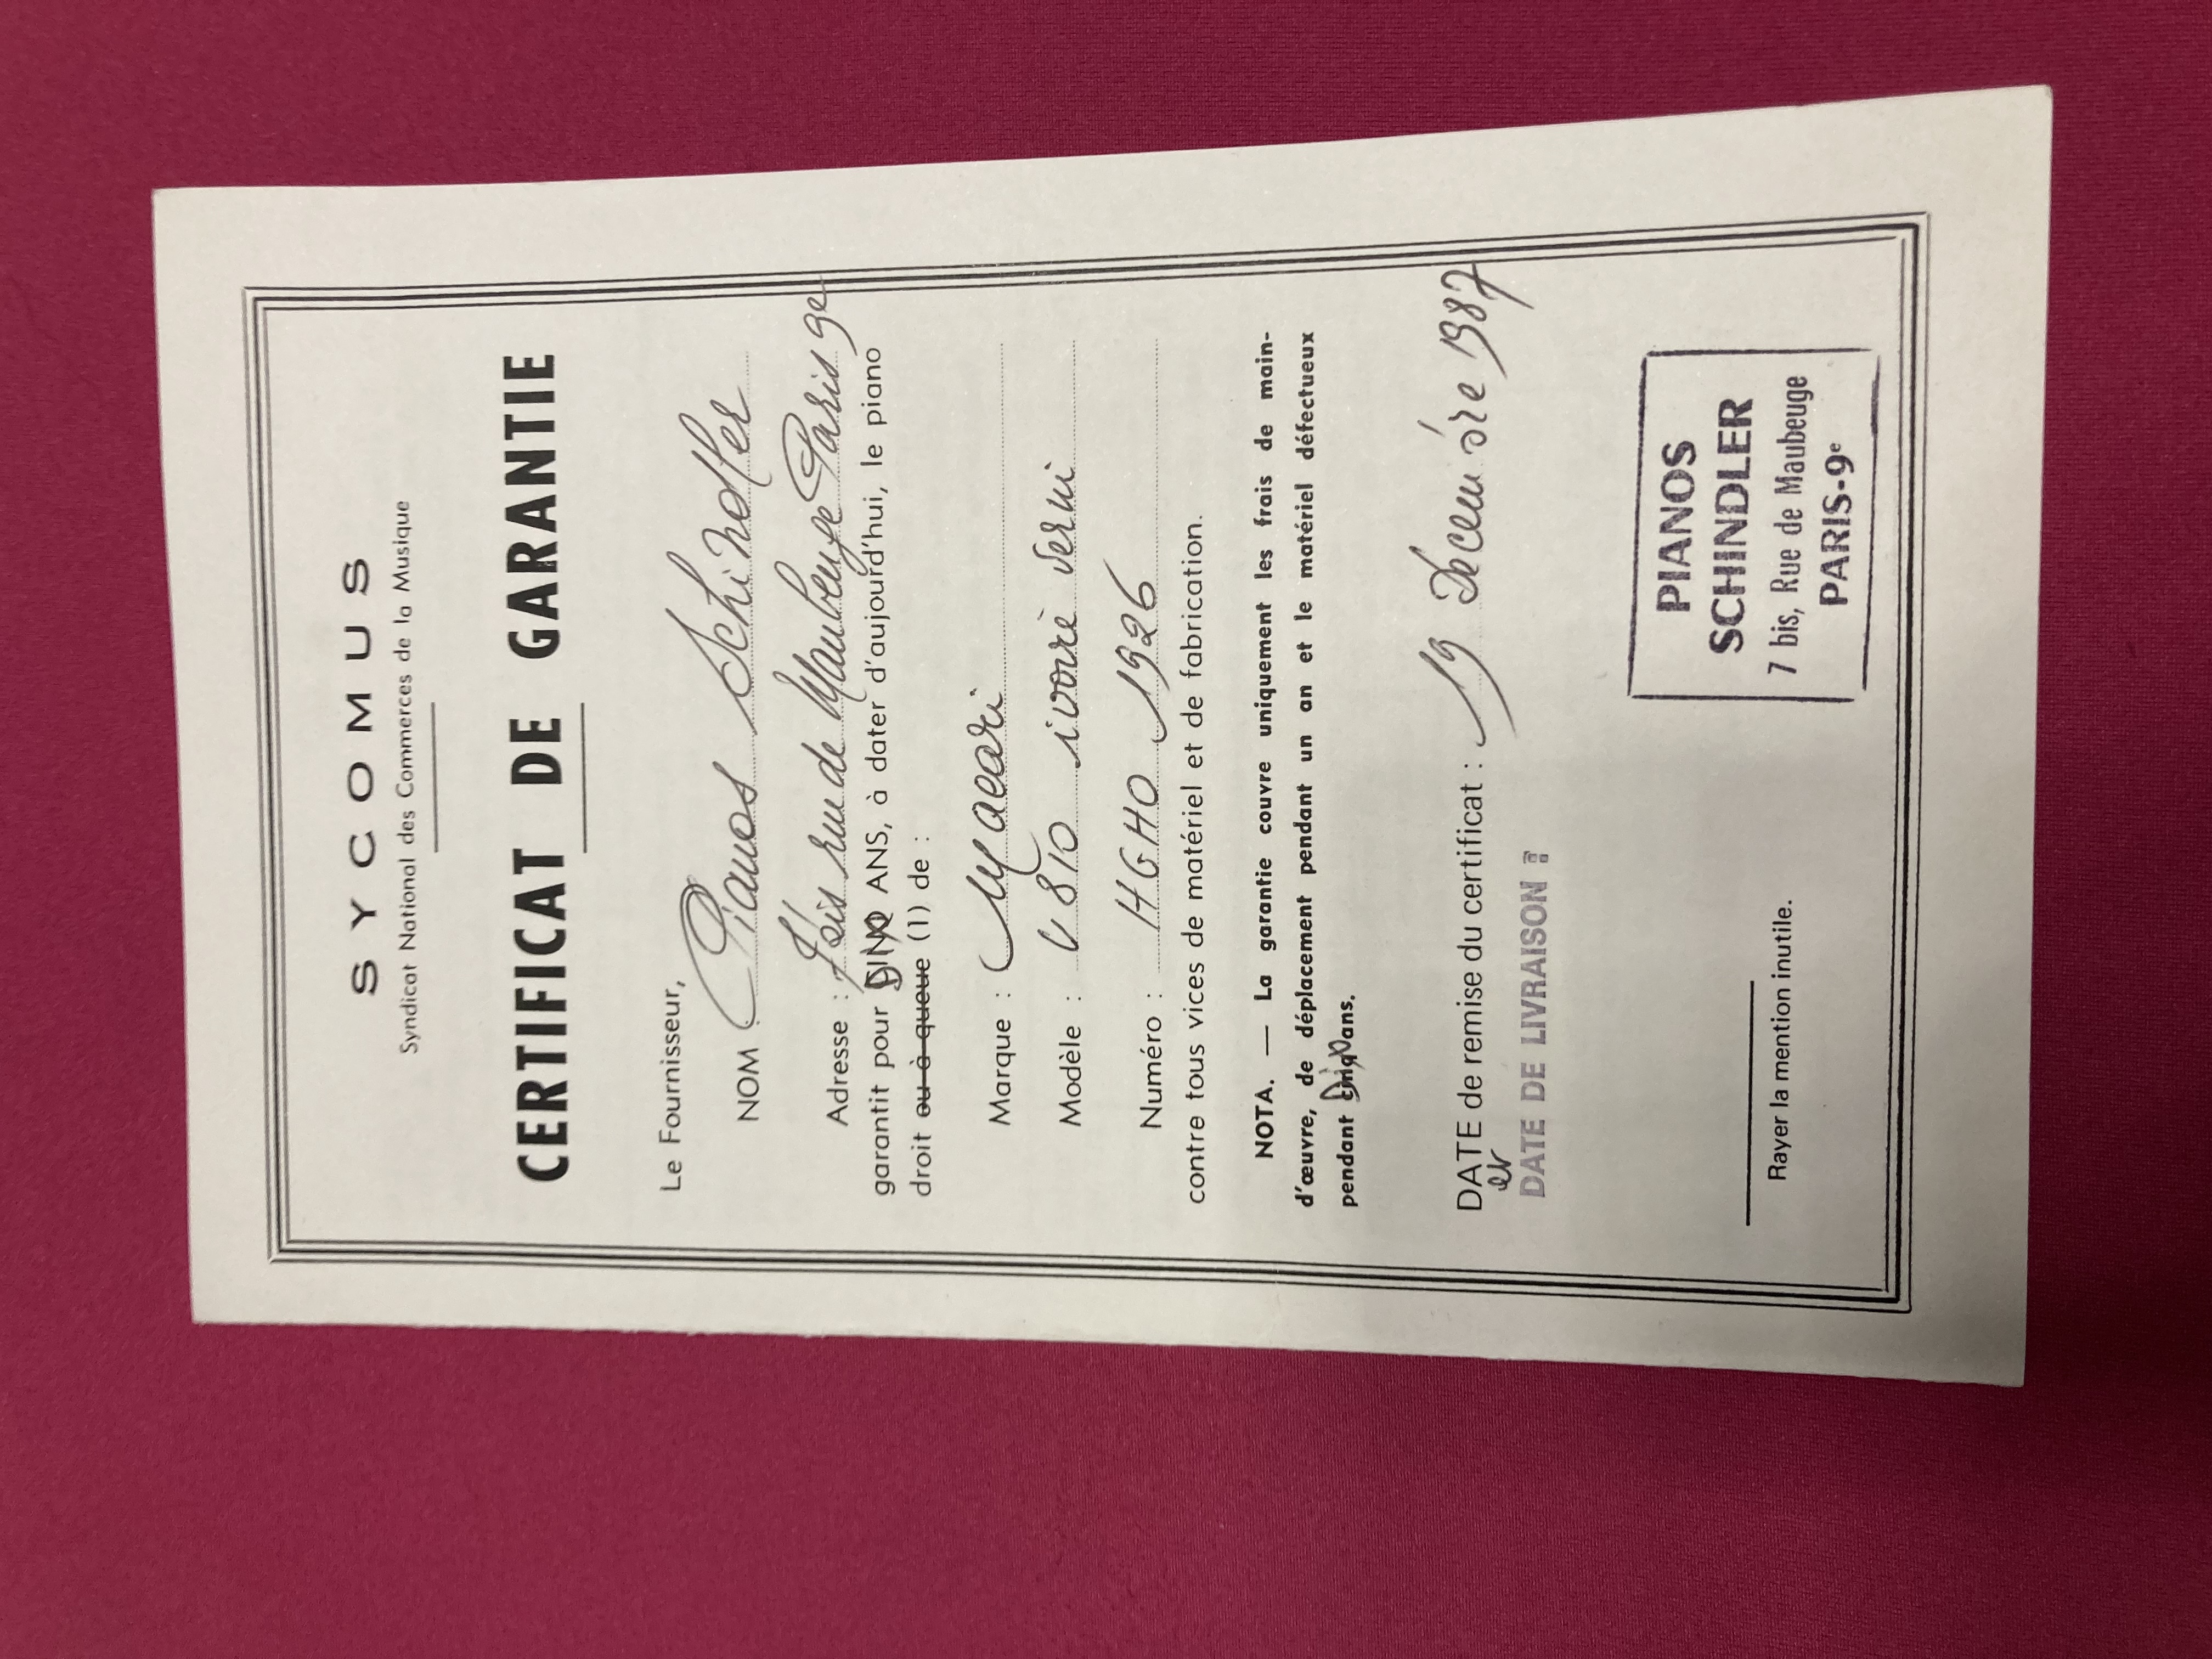 SYCOMUS
Syndicat National des Commerces de la Musique
CERTIFICAT DE GARANTIE
Le Fournisseur,
NOM : Pianos Schindler
Adresse : 7 bis rue de Maubeuge Paris 9e
garantit pour ANS, à dater d'aujourd'hui, le piano
droit ou à queue (1) de :
Marque :
Modèle : 810 ivoire verni
Numéro : HGHO 1926
contre tous vices de matériel et de fabrication.
NOTA. — La garantie couvre uniquement les frais de main-
d'œuvre, de déplacement pendant un an et le matériel défectueux
pendant cinq Dix ans.
DATE de remise du certificat : 19 Décembre 1987
et
DATE DE LIVRAISON
PIANOS
SCHINDLER
7 bis, Rue de Maubeuge
PARIS-9e
Rayer la mention inutile.